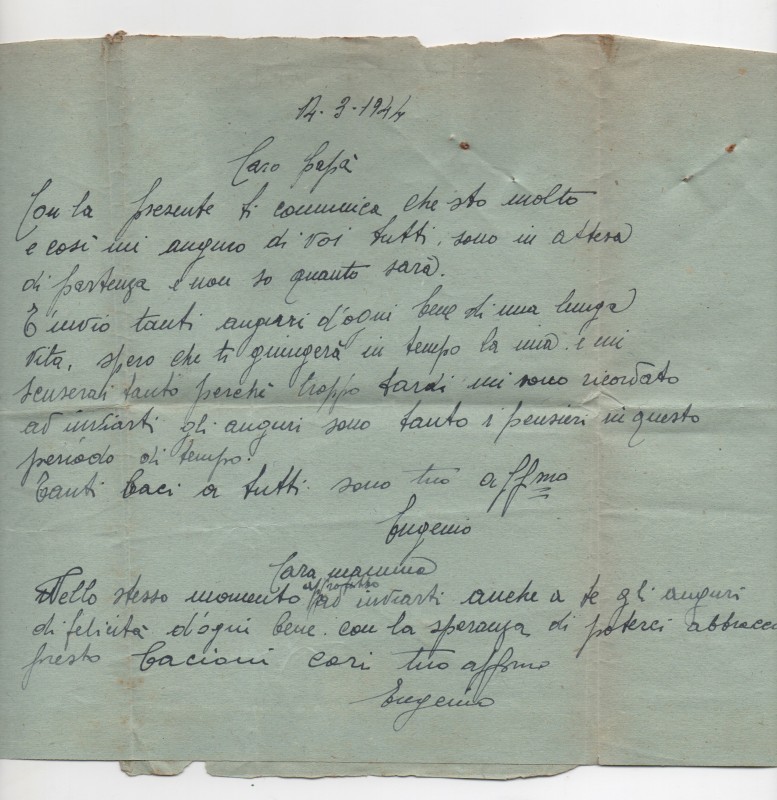 12-3-1944
Caro Papà
Con la presente ti comunica che sto molto
e così mi auguro di voi tutti. sono in attesa
di partenza e non so quanto sarà.
T'invio tanti auguri d'ogni bene di una lunga
vita, spero che ti giungerà in tempo la mia. e mi
scuserai tanto perchè troppo tardi mi sono ricordato
ad inviarti gli auguri sono tanto i pensieri in questo
periodo di tempo.
Tanti baci a tutti sono tuo affmo
Eugenio
Cara mamma
Nello stesso momento approfitto ad inviarti anche a te gli auguri
di felicità d'ogni bene. con la speranza di poterci abbracci
presto bacioni cari tuo affmo
Eugenio